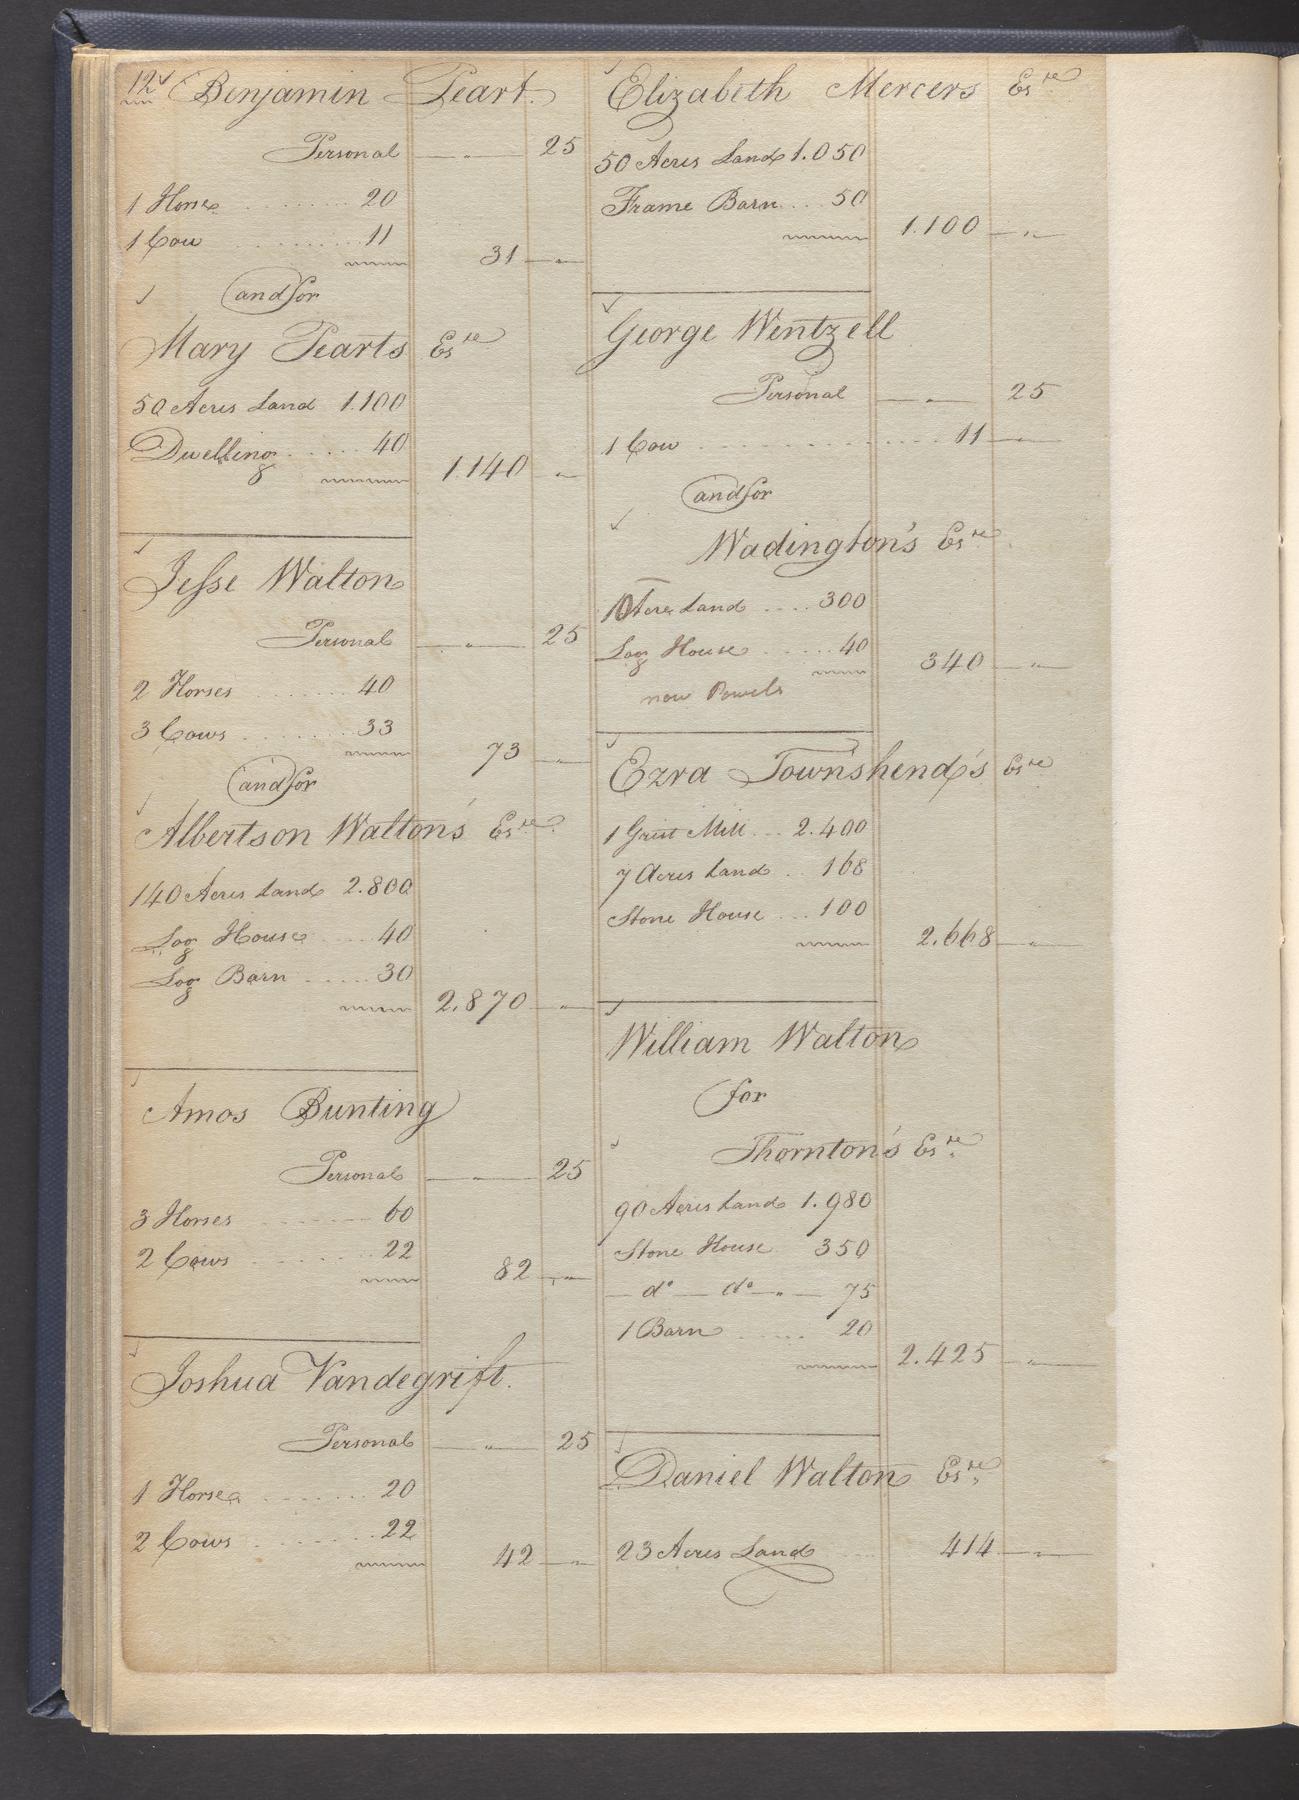 12 Benjamin Peart.
Personal — „ — 25
1 Horse ........ 20
1 Cow ........ 11
31 — „ —
and for
Mary Pearts Este
50 Acres Land 1.100
Dwelling ...... 40
1.140 — „ —
Jesse Walton
Personal — „ — 25
2 Horses ....... 40
3 Cows ........ 33
73 — „ —
and for
Albertson Walton's Este
140 Acres Land 2.800
Log House ..... 40
Log Barn ..... 30
2.870 — „ —
Amos Bunting
Personal — „ — 25
3 Horses ------- 60
2 Cows ....... 22
82 — „ —
Joshua Vandegrift.
Personal — „ — 25
1 Horse ....... 20
2 Cows ........ 22
42 — „ —
Elizabeth Mercers Este
50 Acres Land 1.050
Frame Barn ... 50
1.100 — „ —
George Wentzell
Personal — „ — 25
1 Cow .............. 11 — „ —
and for
Wadington's Este
Acre Land .... 300
Log House ...... 40
340 — „ —
now Powels
Ezra Townshend's Este
1 Grist Mill ... 2.400
7 Acres Land .. 168
Stone House ... 100
2.668 — „ —
William Walton
for
Thornton's Este
90 Acres Land 1.980
Stone House 350
— do — do — „ — 75
1 Barn ..... 20
2.425 — „ —
Daniel Walton Este
23 Acres Land .... 414 — „ —